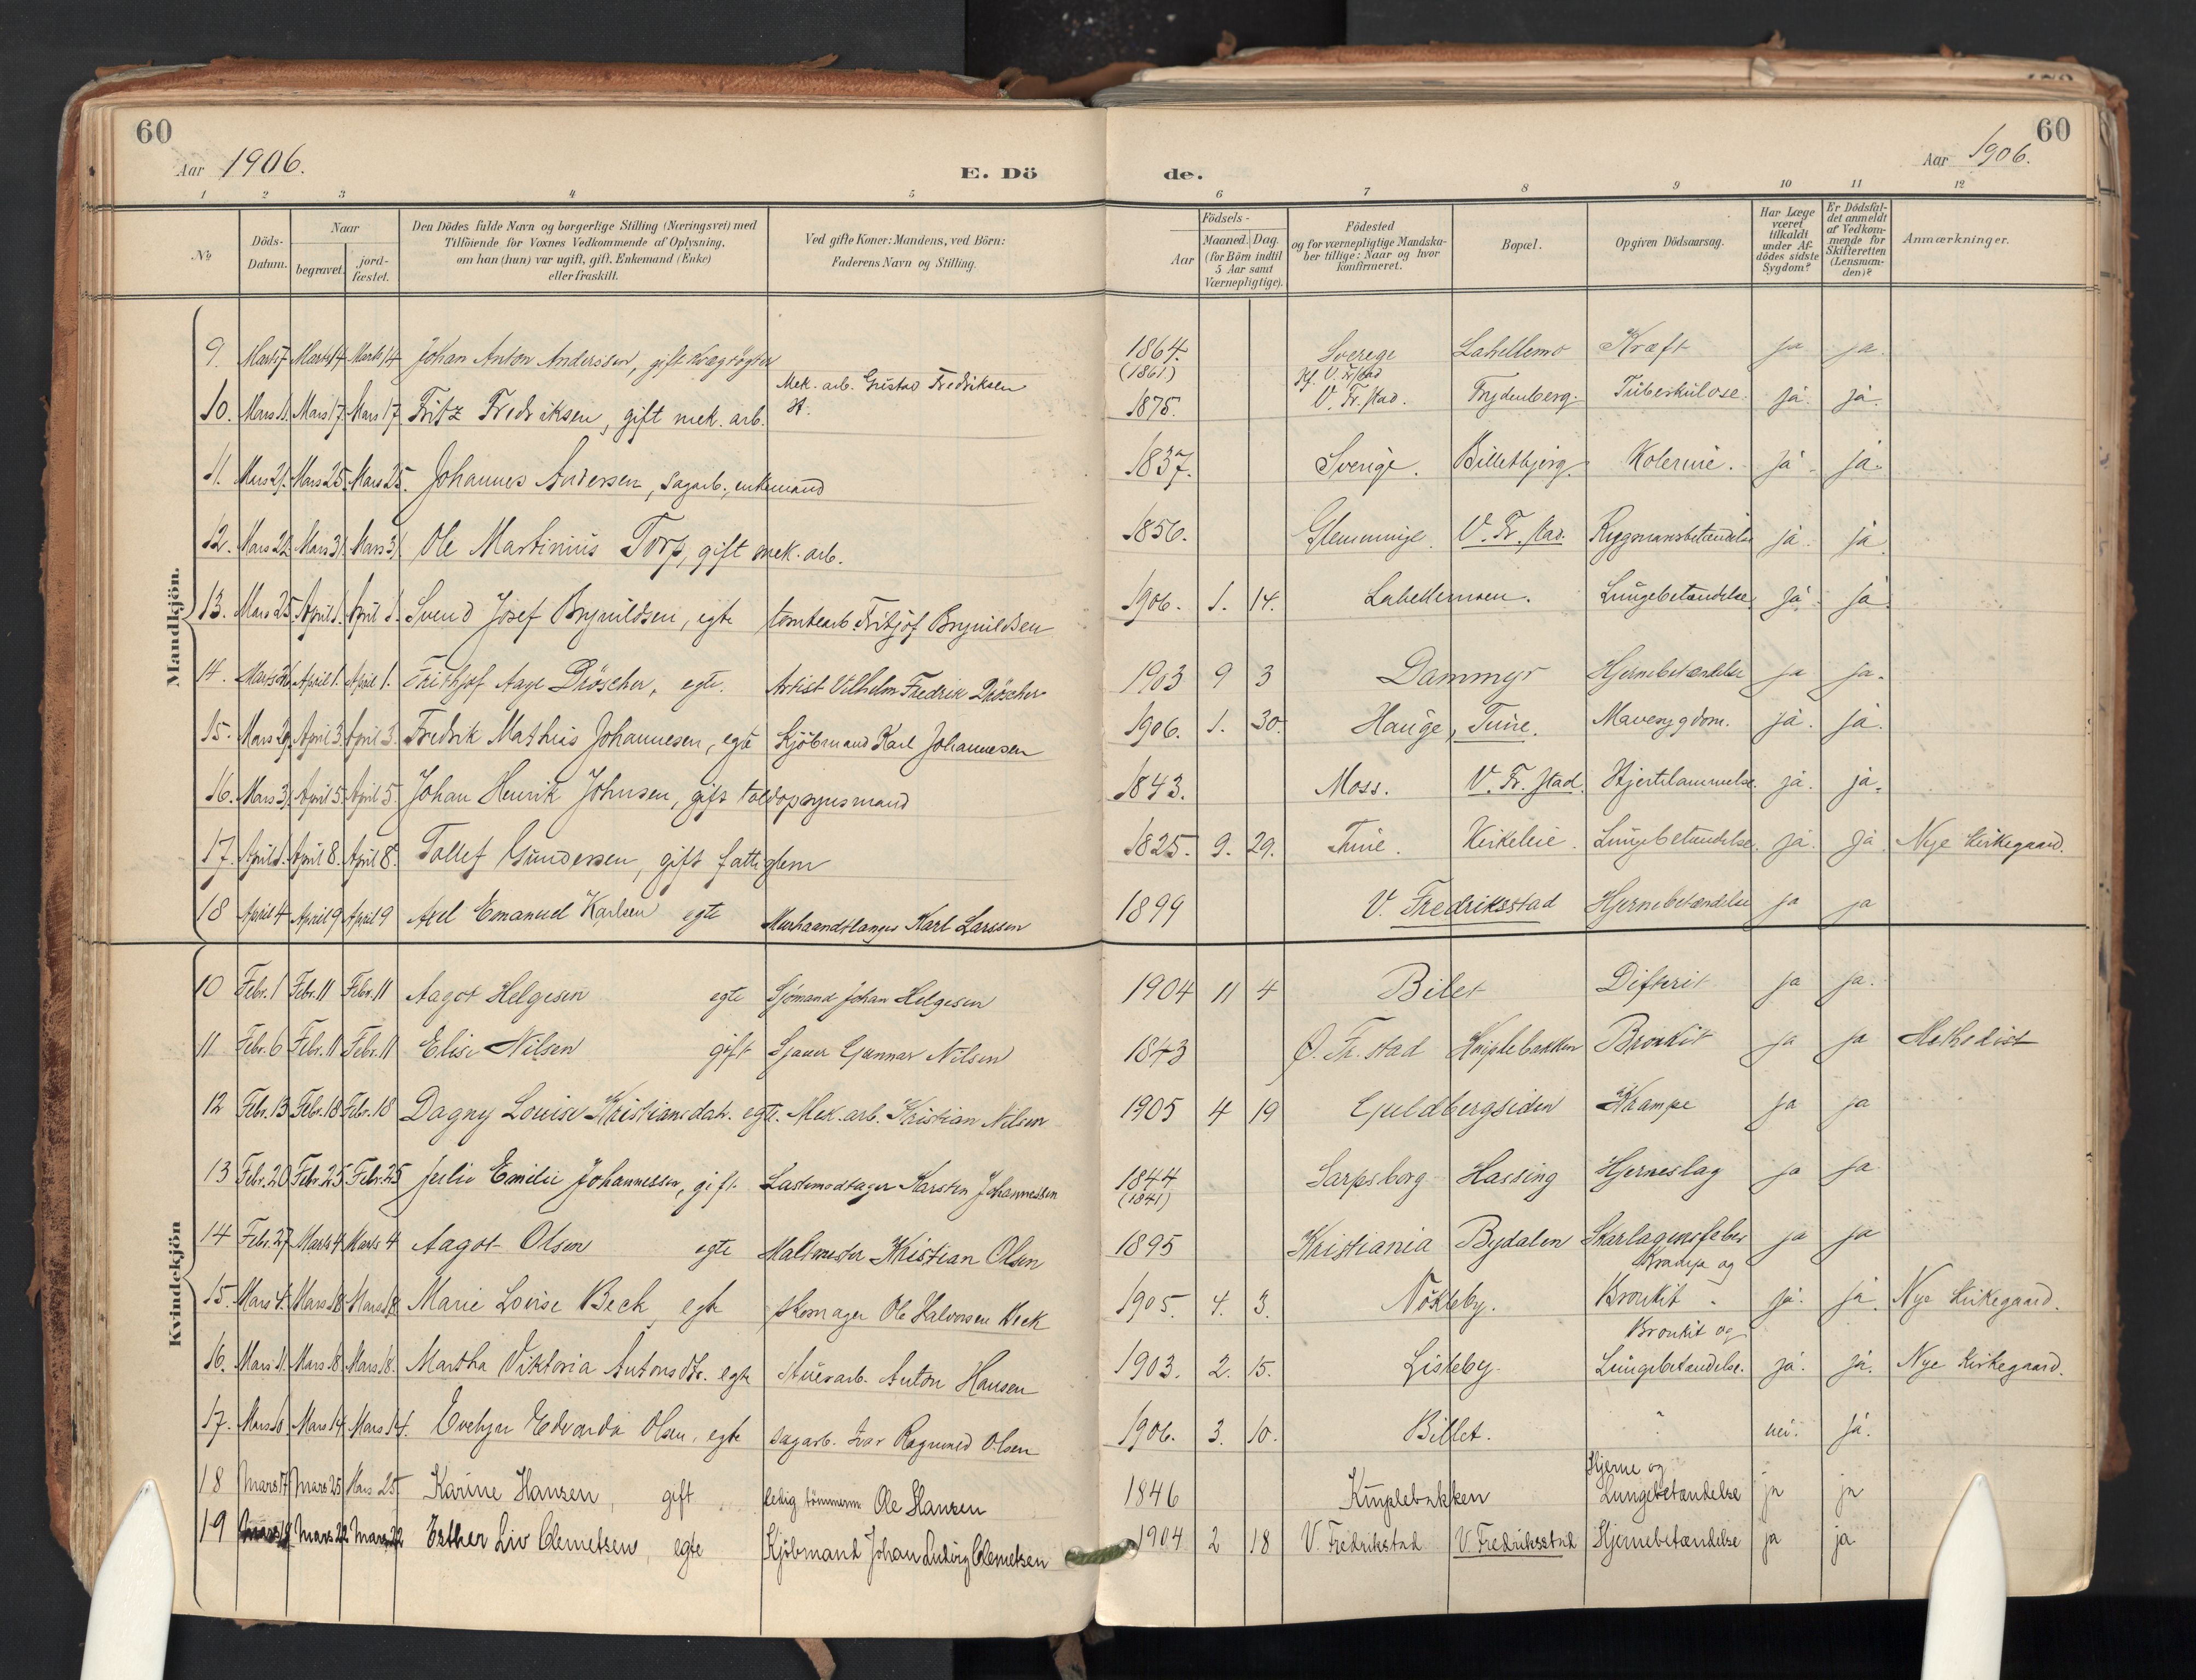 60
Aar 1906.
E. Dö
de.
Aar 1906.
60
1 2 3 4 5 6 7 8 9 10 11 12
No
Döds-Datum.
Naar
begravet.
jord-fæstet.
Den Dödes fulde Navn og borgerlige Stilling (Næringsvei) med
Tilföiende for Voxnes Vedkommende af Oplysning,
om han (hun) var ugift, gift, Enkemand (Enke)
eller fraskilt.
Ved gifte Koner: Mandens, ved Börn:
Faderens Navn og Stilling.
Födsels-
Aar
Maaned. Dag.
(for Börn indtil
5 Aar samt
Værnepligtige).
Födested
og for værnepligtige Mandska-
ber tillige: Naar og hvor
konfirmeret.
Bopæl.
Opgiven Dödsaarsag.
Har Læge
været
tilkaldt
under Af-
dödes sidste
Sygdom?
Er Dödsfal-
det anmeldt
af Vedkom-
mende for
Skifteretten
(Lensman-
den)?
Anmærkninger.
Mandkjön.
9. Marts 7 Marts 14 Marts 14 Johan Anton Anderssen, gift 1864. (1861) Sverege Labellemo Kræft ja ja.
10. Mars 11. Mars 17. Mars 17. Fritz Fredriksen, gift mek. arb. Mek. arb. Gustav Fredriksen 1875. V. Fr.stad. Frydenberg. Tuberkulose. ja. ja.
11. Mars 21. Mars 25. Mars 25. Johannes Andersen, sagarb., enkemand 1837. Sverige. Billetbjerg. Kolerine. ja. ja.
12. Mars 22. Mars 31. Mars 31. Ole Martinius Torp, gift mek. arb. 1856. Glemminge. V. Fr.stad. Rygmarvsbetændelse ja. ja.
13. Mars 25. April 1. April 1. Svend Josef Brynildsen, egte tomtearb. Fritjof Brynildsen 1906. 1. 14. Labellemoen. Lungebetændelse. ja. ja.
14. Marts 26 April 1. April 1. Frithjof Aage Dröscher, egte. Artist Vilhelm Fredrik Dröscher 1903 9 3 Dammyr Hjernebetændelse ja ja.
15. Mars 29. April 3. April 3. Fredrik Mathias Johannesen, egte Kjöbmand Karl Johannesen 1906. 1. 30. Hauge, Tune. Mavesygdom. ja. ja.
16. Mars 31. April 5. April 5. Johan Henrik Johnsen, gift toldopsynsmand 1843. Moss. V. Fr.stad. Hjertelammelse. ja. ja.
17. April 1. April 8. April 8. Tollef Gundersen, gift fattiglem 1825. 9. 29. Tune. Kirkeleie. Lungebetændelse. ja. ja. Nye Kirkegaard.
18 April 4 April 9 April 9 Axel Emanuel Karlsen egte Murhaandtlanger Karl Larssen 1899 V. Fredriksstad Hjernebetændelse ja ja
Kvindekjön
10 Febr. 1 Febr. 11 Febr. 11 Aagot Helgesen egte Sjömand Johan Helgesen 1904 11 4 Bilet Difterit ja ja.
11 Febr. 6 Febr. 11 Febr. 11 Elise Nilsen gift Sjauer Gunnar Nilsen 1843 Ø. Fr.stad Kniplebakken Bronkit ja ja Methodist
12 Febr. 13 Febr. 18 Febr. 18 Dagny Louise Kristiansdatr. egte. Mek. arb. Kristian Nilsen 1905 4 19 Guldbergsiden Krampe ja ja
13 Febr. 20 Febr. 25 Febr. 25 Julie Emilie Johannessen, gift. Lastemodtager Karsten Johannessen 1844 (1841) Sarpsborg Hassing Hjerneslag ja ja
14 Febr. 27 Marts 4 Marts 4 Aagot Olsen egte Maltmester Kristian Olsen 1895 Kristiania Bydalen Skarlagensfeber ja ja
15. Mars 4. Mars 18. Mars 18. Marie Louise Beck egte skomager Ole Halvorsen Beck 1905. 4. 3. Nökleby. og Bronkit ja. ja. Nye Kirkegaard.
16. Mars 11. Mars 18. Mars 18. Martha Viktoria Antonsdtr. egte Stuerarb. Anton Hansen 1903. 2. 15. Lisleby. Bronkit og Lungebetændelse. ja. ja. Nye Kirkegaard.
17. Mars 10 Mars 14 Mars 14. Evelyn Edvarda Olsen, egte sagarb. Ivar Olsen 1906. 3. 10. Billet. " nei. ja.
18 Mars 17 Mars 25 Mars 25 Karine Hansen, gift ledig tömmerm. Ole Hansen 1846 Kniplebakken Hjerne og Lungebetændelse ja ja
19 Mars 18 Mars 22 Mars 22 Esther Liv Clemetsen, egte Kjöbmand Johan Ludvig Clemetsen 1904 2 18 V. Fredrikstad V. Fredriksstad Hjernebetændelse ja ja